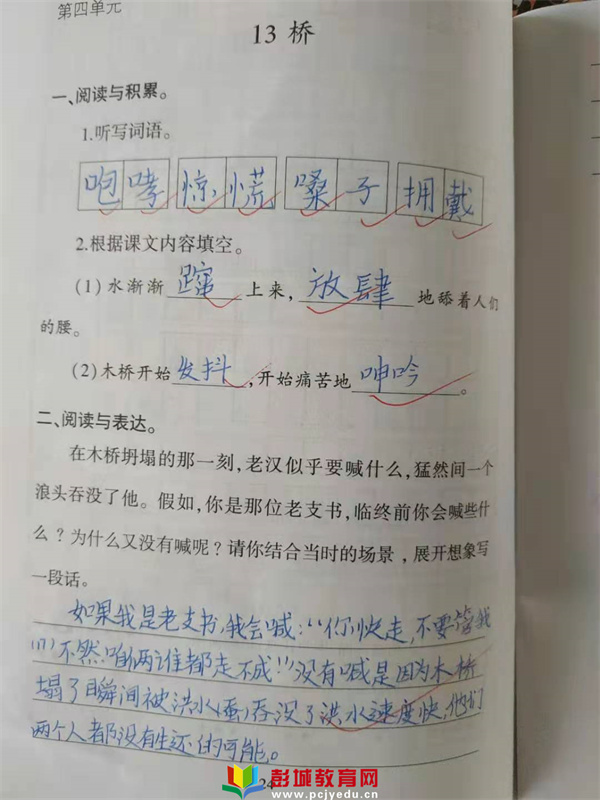 第四单元
13 桥
一、阅读与积累。
1.听写词语。
咆哮 惊慌 嗓子 拥戴
2.根据课文内容填空。
(1)水渐渐 蹿 上来,放肆 地舔着人们
的腰。
(2)木桥开始 发抖 ,开始痛苦地 呻吟 。
二、阅读与表达。
在木桥坍塌的那一刻,老汉似乎要喊什么,猛然间一个
浪头吞没了他。假如,你是那位老支书,临终前你会喊些什
么?为什么又没有喊呢?请你结合当时的场景,展开想象写
一段话。
如果我是老支书,我会喊:“你快走,不要管我
们不然咱俩谁都走不成!”没有喊是因为木桥
塌了瞬间被洪水吞没了洪水速度快,他们
两个人都没有生还的可能。
24
彭城教育网
www.pcjyedu.cn